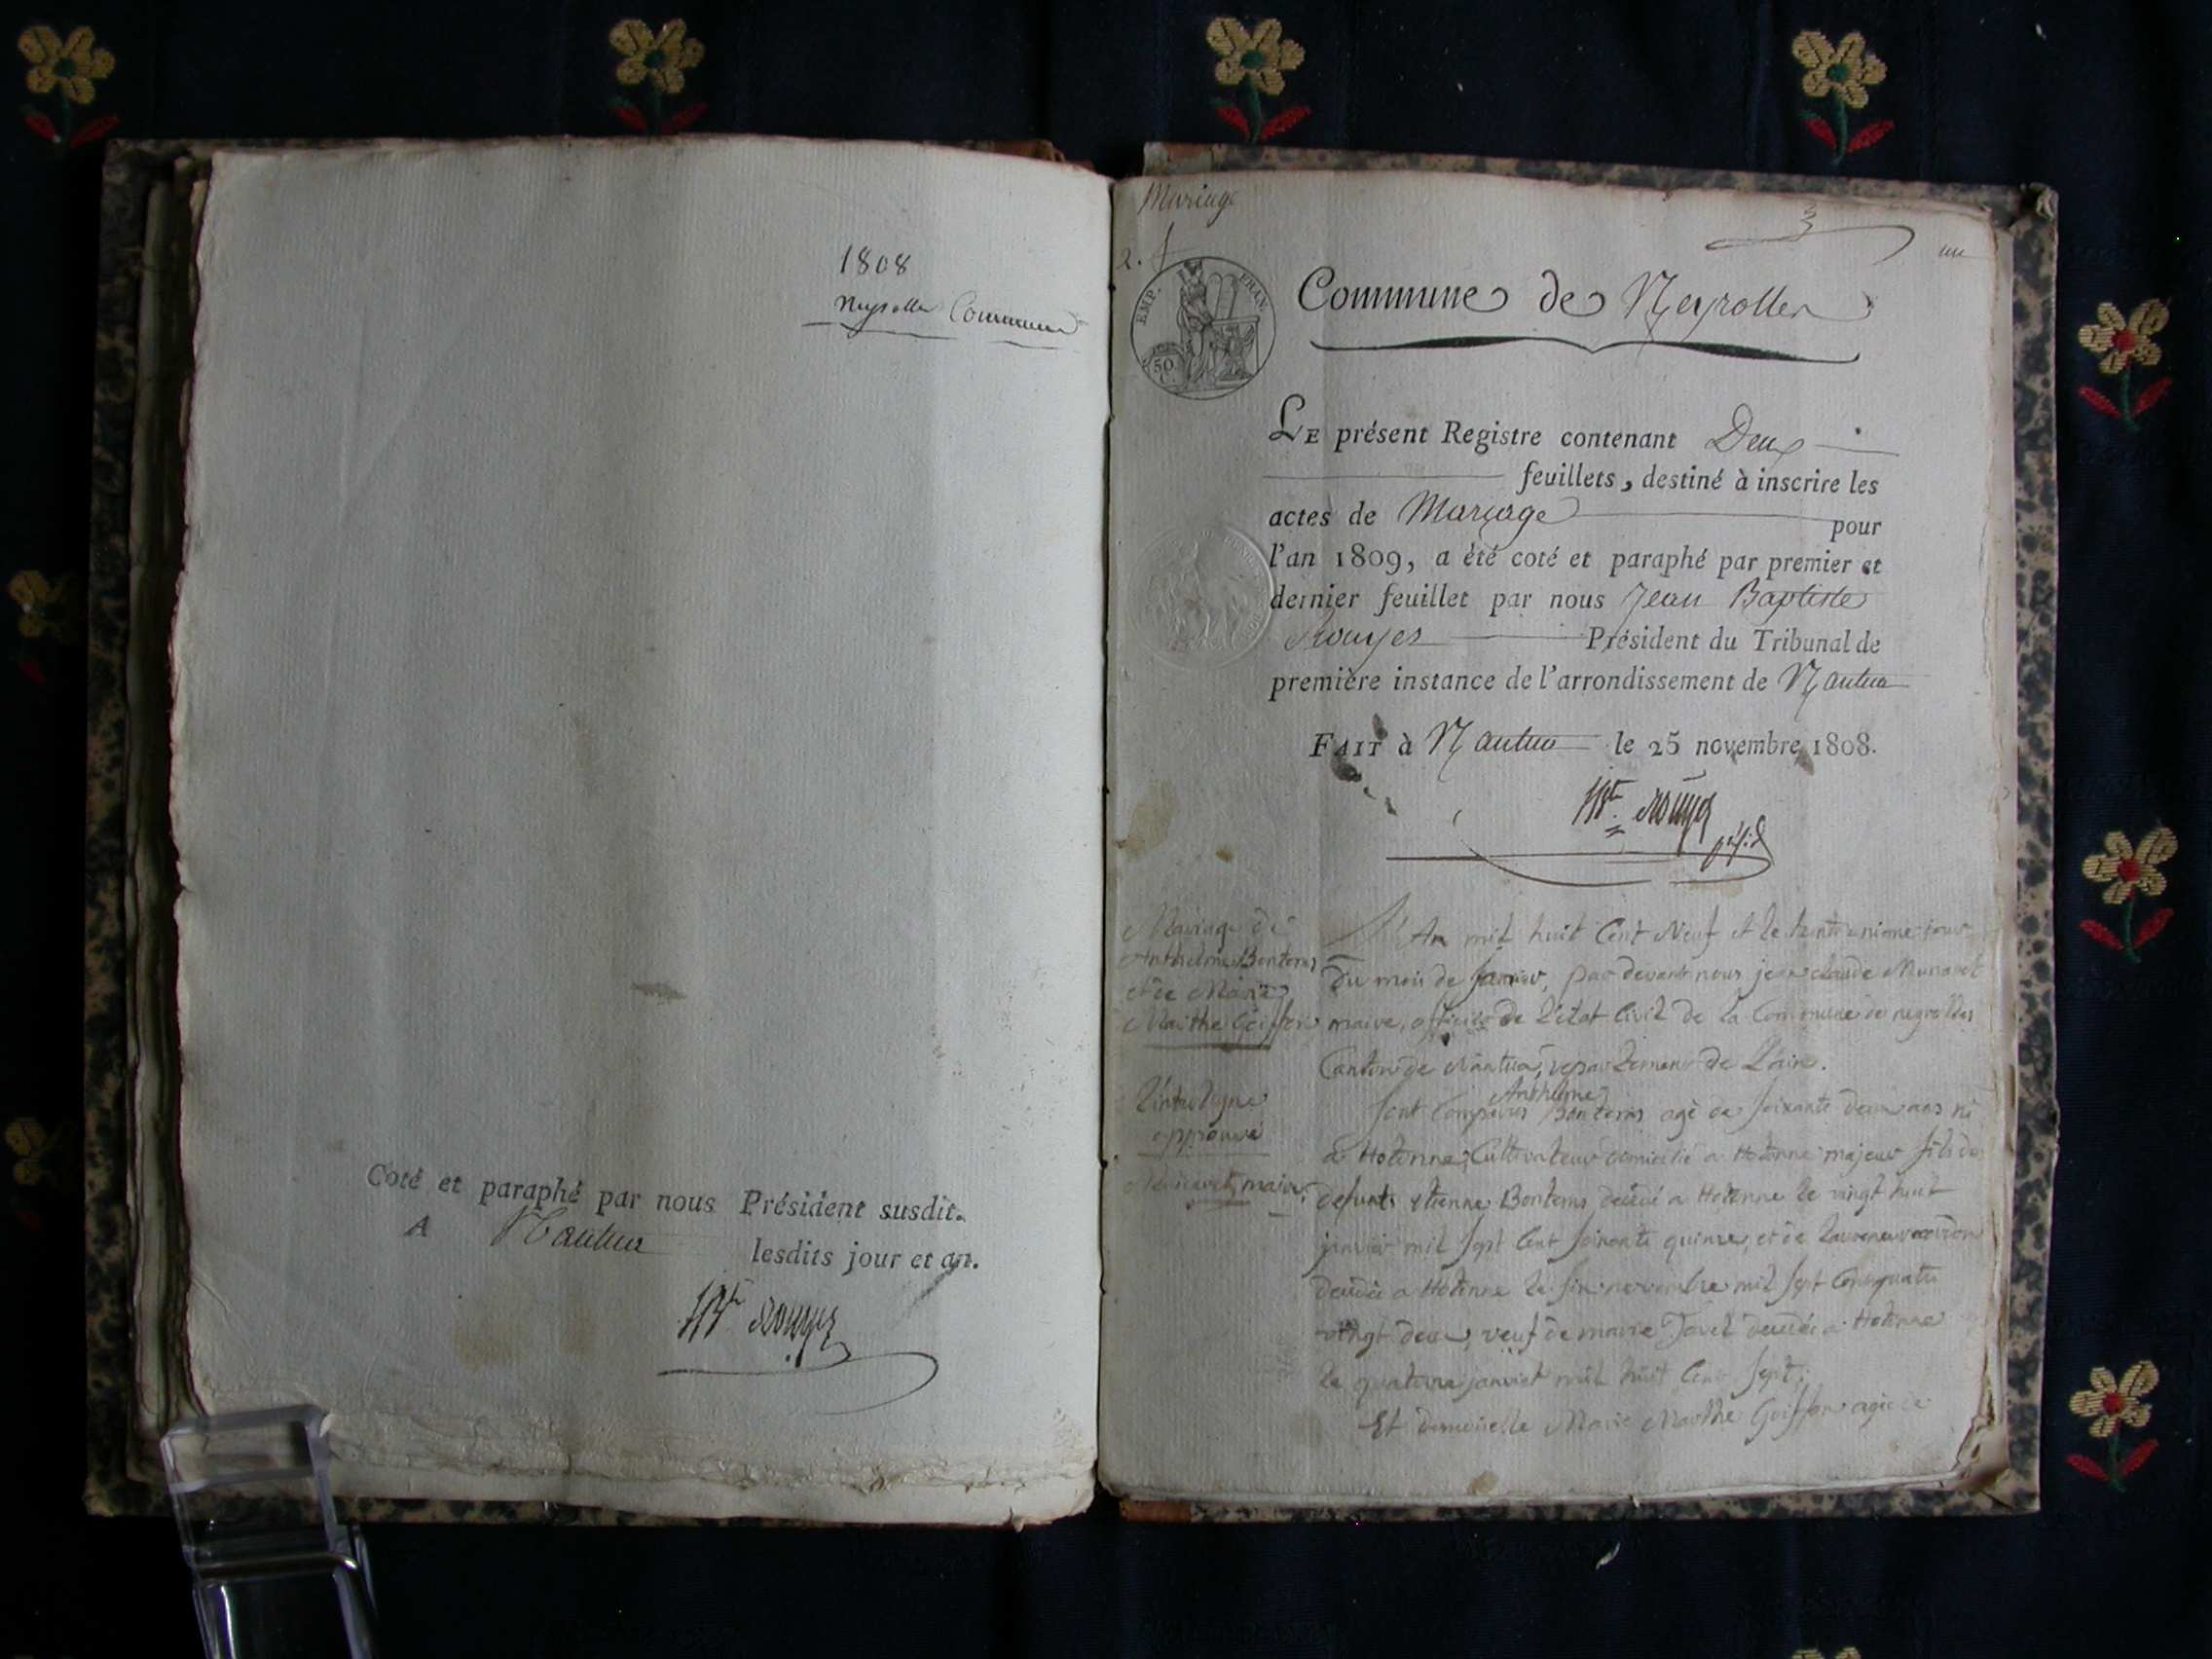 1808
Neyrolles Commune
Coté et paraphé par nous Président susdit.
A Nantua lesdits jour et an.
Mariage
2. f
3
un
EMP. FRAN.
50 C.
Commune de Neyrolles
LE présent Registre contenant Deux
feuillets, destiné à inscrire les
actes de Mariage pour
l'an 1809, a été coté et paraphé par premier et
dernier feuillet par nous Jean Baptiste
Rouyer Président du Tribunal de
première instance de l'arrondissement de Nantua
FAIT à Nantua le 25 novembre 1808.
Mariage de
Anthelme Bontems
et de Marie
Marthe Goiffon
L'An mil huit Cent Neuf et le trente unieme jour
du mois de Janvier, par devant nous jean claude
maire, officier de l'état Civil de la Commune de neyrolles
Canton de Nantua, departement de L'ain.
Sont Comparus Anthelme Bontems agé de soixante deux ans né
a Hotonne, Cultivateur domicilié a Hotonne majeur fils de
L'interligne
approuvé
maire
defunts etienne Bontems decédé a Hotonne le vingt huit
janvier mil sept Cent soixante quinze, et de
decedée a Hotonne le six novembre mil sept Cent quatre
vingt deux, veuf de marie decedée a Hotonne
le quatorze janvier mil huit Cent sept;
Et demoiselle Marie Marthe Goiffon agée de